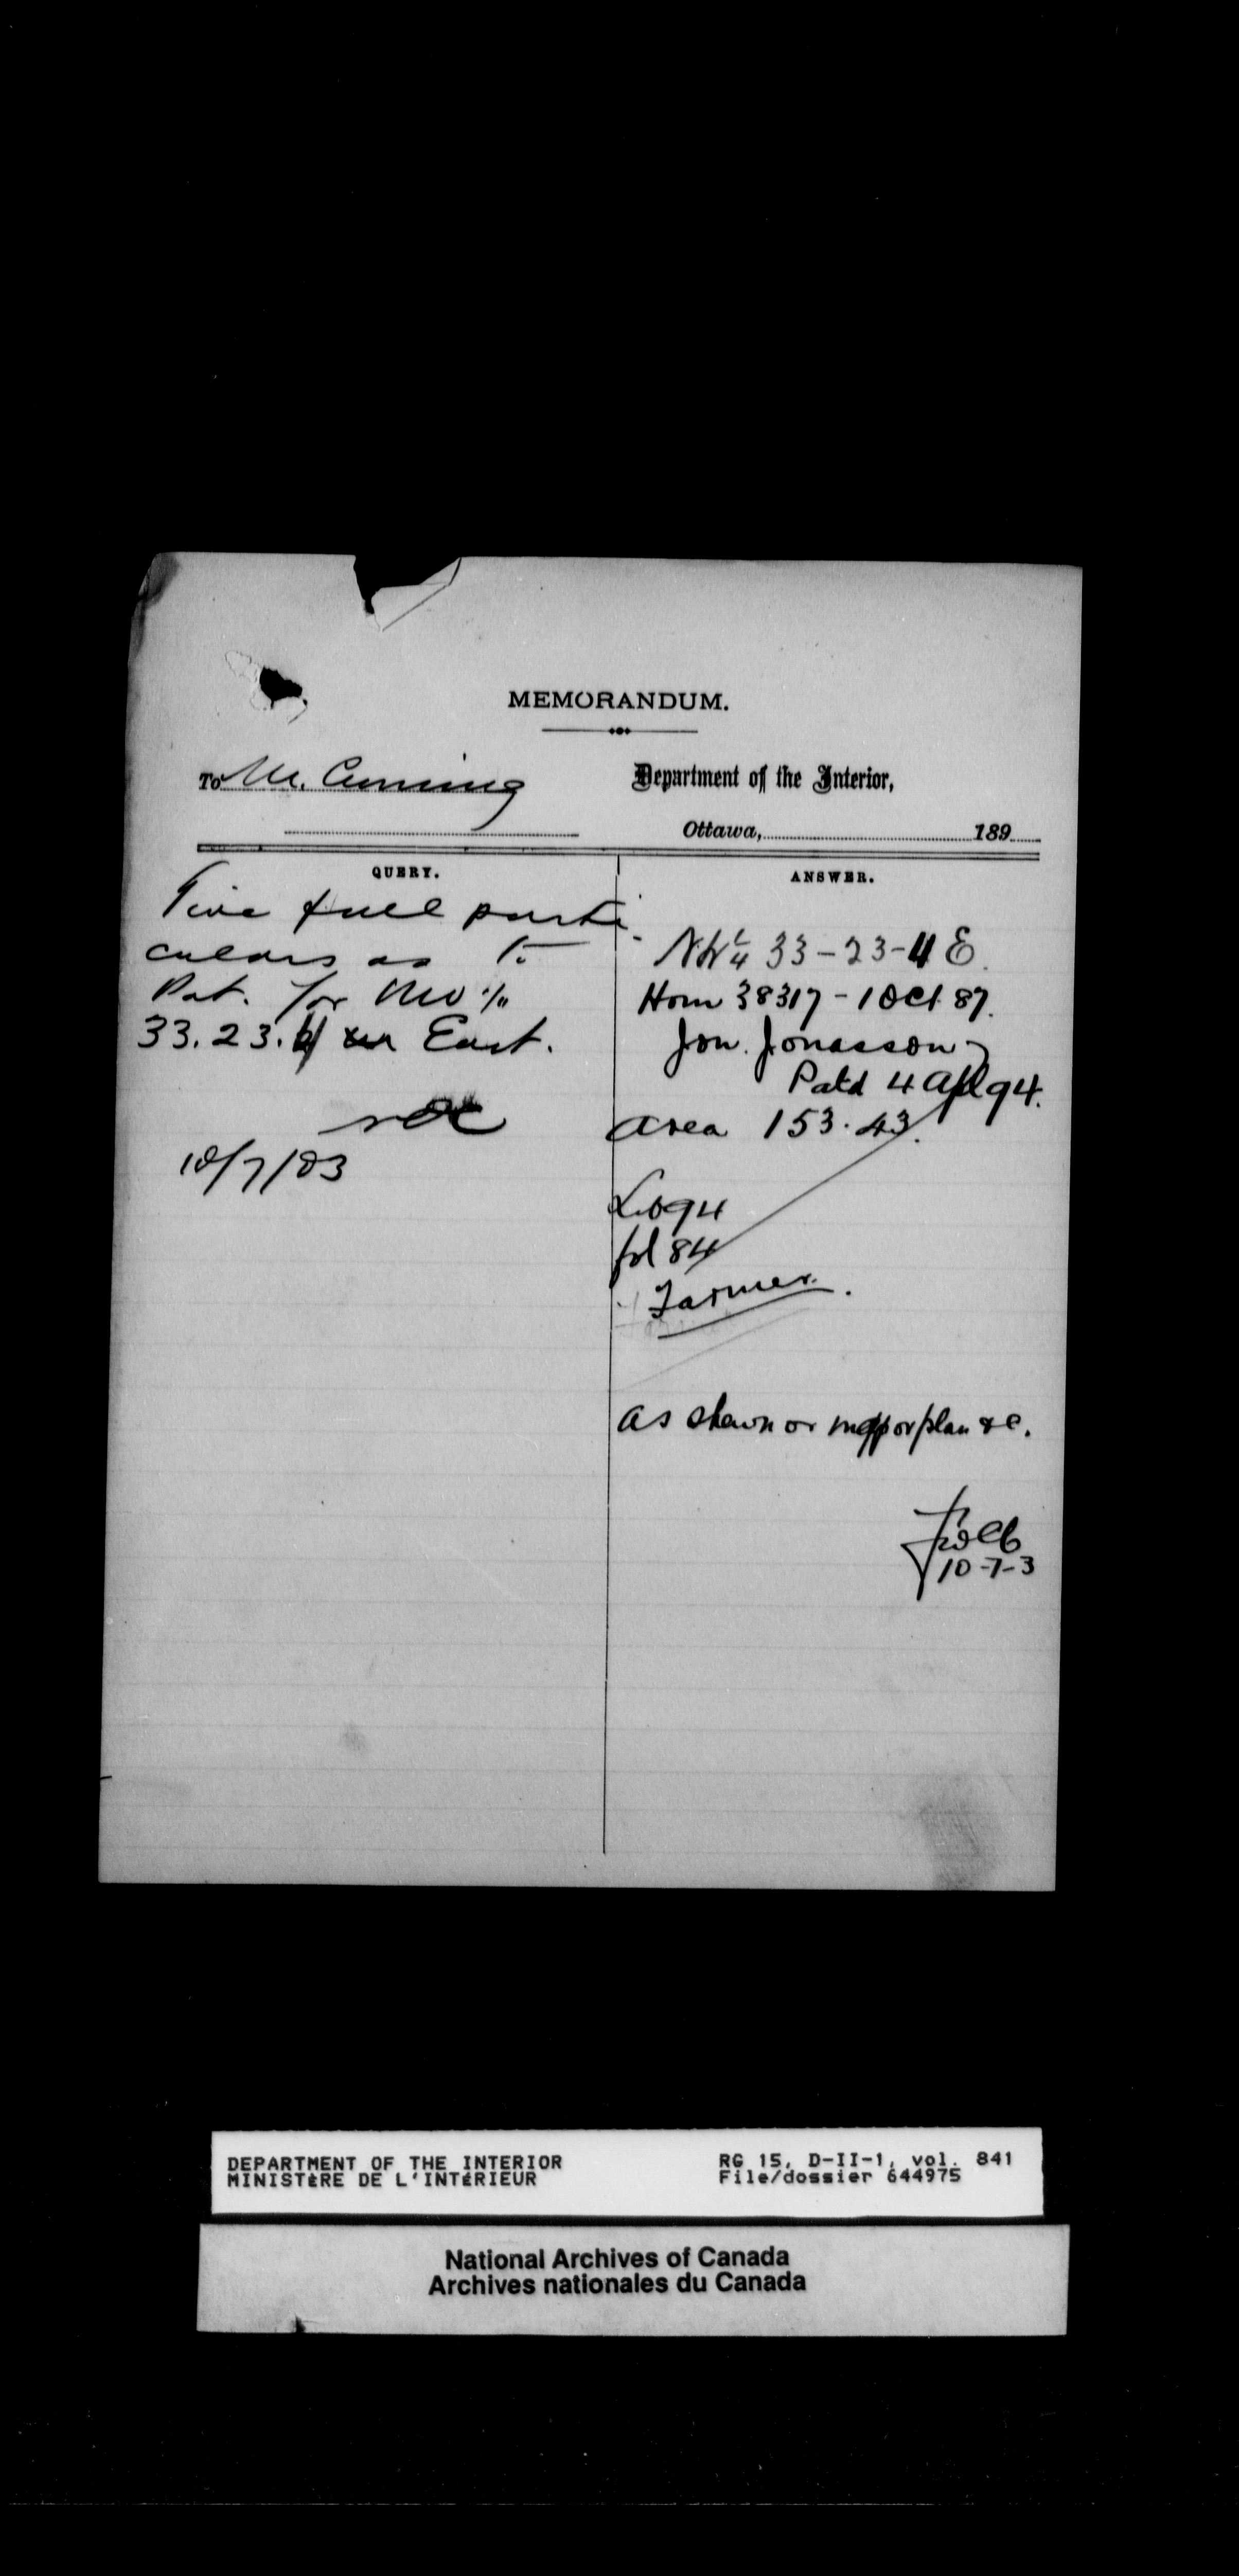 MEMORANDUM.
To Mr. Cuming
Department of the Interior,
Ottawa, 189
QUERY.
Give full parti-
culars as to
Pat. for NW ¼
33.23.4 East.
10/7/03
ANSWER.
NW ¼ 33-23-4 E.
Hom 38317 - 1 Oct 87.
Jon. Jonasson
Patd 4 Apl 94.
Area 153.43.
Lib 94
fol 84
Farmer.
As shewn on map or plan &c.
10-7-3
DEPARTMENT OF THE INTERIOR
MINISTÈRE DE L'INTÉRIEUR
RG 15, D-II-1, vol. 841
File/dossier 644975
National Archives of Canada
Archives nationales du Canada